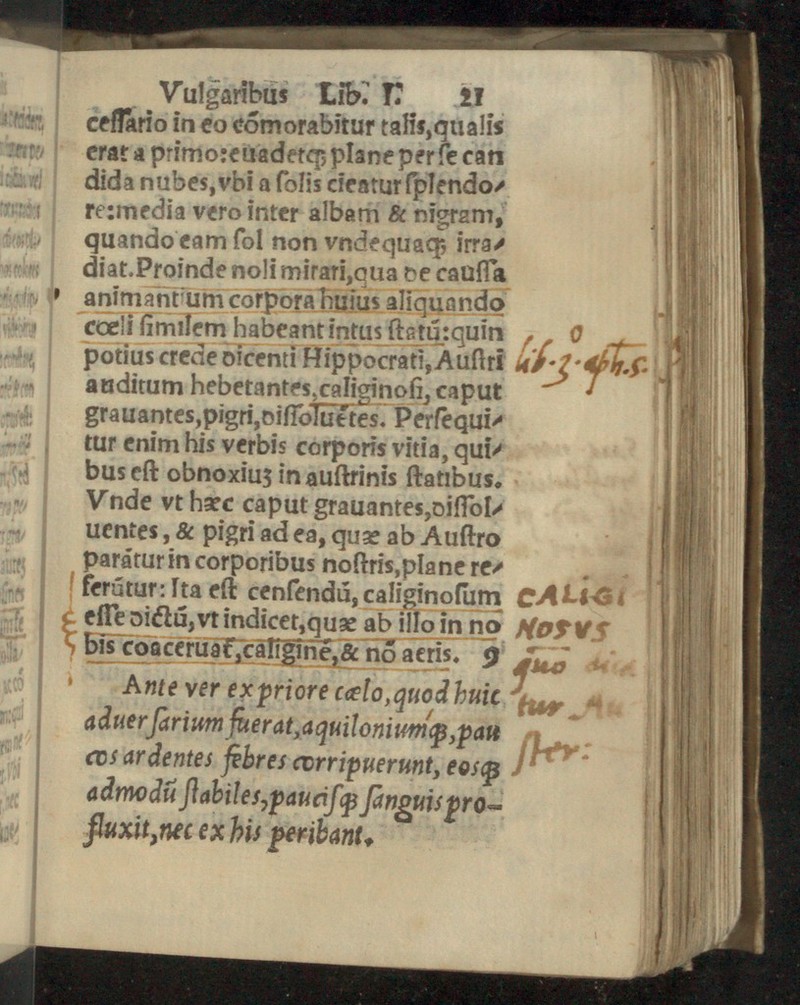 Vulgaribus Lib. I. 21
cessario in eo cõmorabitur talis, qualis
erat a primo: euadetq; plane per se can
dida nubes, vbi a solis cieatur splendo⸗
re: media vero inter albam & nigram,
quando eam sol non vndequaq; irra⸗
diat. Proinde noli mirari, qua de caussa
animantium corpora huius aliquando
cœli similem habeant intus statũ: quin
potius crede dicenti Hippocrati, Austri
lib. 3. aph. 5.
auditum hebetantes, caliginosi, caput
grauantes, pigri, dissoluẽtes. Persequi⸗
tur enim his verbis corporis vitia, qui⸗
bus est obnoxiuʒ in austrinis statibus.
Vnde vt hæc caput grauantes, dissol⸗
uentes, & pigri ad ea, quæ ab Austro
parãtur in corporibus nostris, plane re⸗
ferũtur: Ita est censendũ, caliginosum
CALIGI
esse dictũ, vt indicet, quæ ab illo in no
NOSVS
bis coaceruat, caliginẽ, & nõ aeris. 9
quo dici
Ante ver ex priore cælo, quod huic
tur Au
aduersarium fuerat, aquiloniumq;, pau
ster:
cos ardentes febres corripuerunt, eosq;
admodũ stabiles, paucisq; sanguis pro-
fluxit, nec ex his peribant.